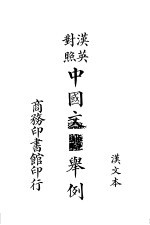 漢英
對照
中國文[?]舉例
漢文本
商務印書館印行